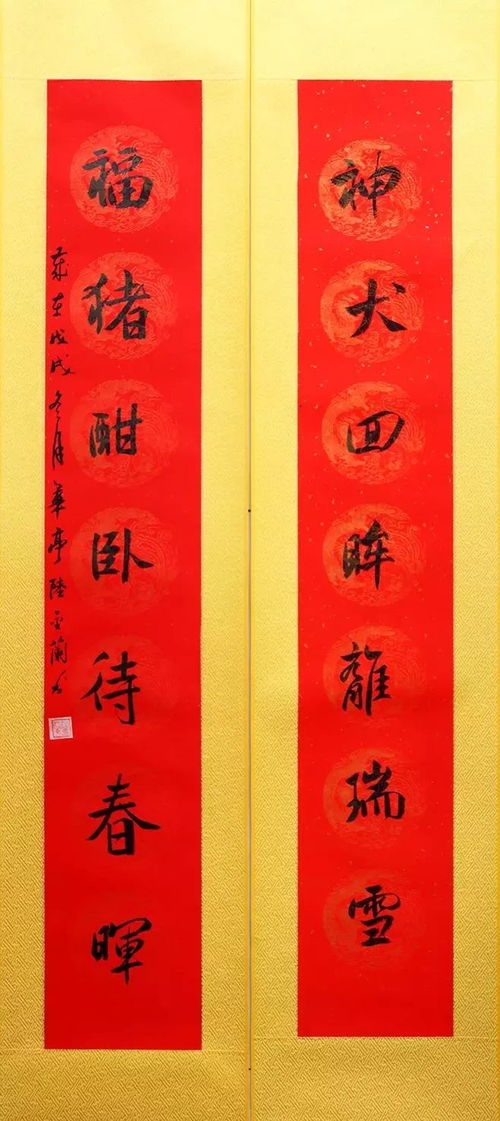 神犬回眸離瑞雪
福猪酣卧待春暉
歲在戊戌冬月華亭陸金蘭书